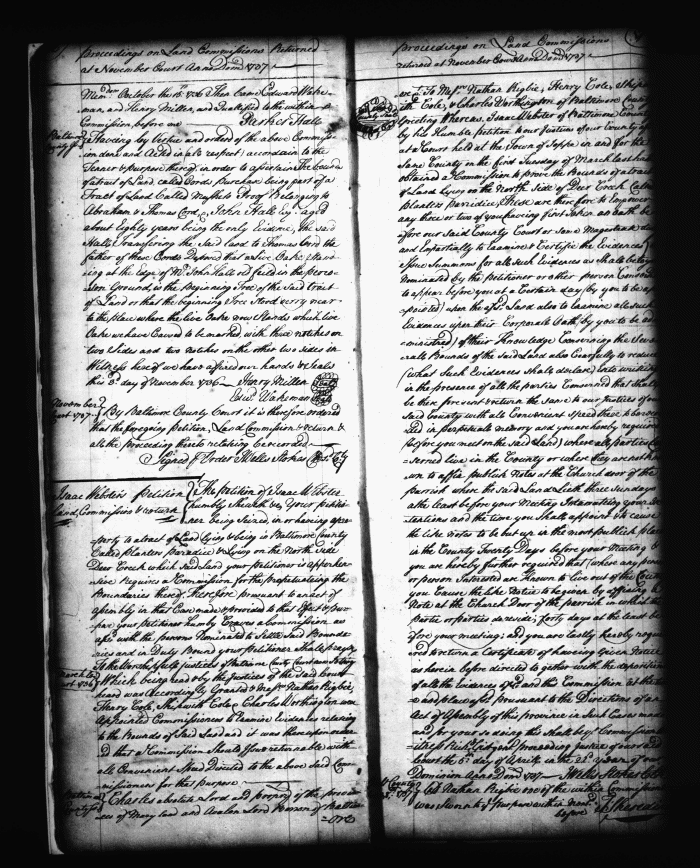 Proceedings on Land Commissions Returned
at November Court Anno Domi 1737
Memdm October the 13th 1736 Then Came Edward Wake
man, and Henry Millen, and Qualified to the within
Commission before me Parker Hall
Baltimore
County ss
Having by Virtue and order of the above Commiss-
ion done and Acted in all respects according to the
Tenner & purpose thereof, in order to ascertain the bounds
of a tract of Land called Cords Purchase being part of a
Tract of Land Called Belonging to
Abraham & Thomas Cord, John Hall Esqr aged
about Eighty years being the only Evidence, the said
Hall Transferring the said Land to Thomas Cord the
father of these Cords Deposed that a live Oake Stand-
ing at the edge of Mr John Hall old field in the
Ground, is the Beginning Tree of the said tract
of Land or that the beginning Tree Stood very near
to the place where the live Oake now Stands which live
Oake we have Caused to be marked with three notches on
two Sides and two notches on the other two sides in
Witness hereof we have affixed our hands & Seals
this 3d day of November 1736 Henry Millen
Edwd Wakeman
November
Court 1737
By Baltimore County Court it is therefore ordered
that the foregoing Petition, Land Commission & return &
all the proceeding thereto relating be recorded
Signed pr Order Wells Stokes
Isaac Websters Petition
Land, Commission & return
The Petition of Isaac Webster
humbly Sheweth Your petitio
ner being Seized in or having a pro-
perty to a tract of Land lying & being in Baltimore County
Called Planters Paradice & lying on the North Side
Deer Creek which said Land your petitioner is apprehen
sive Requires a Commission for the perpetuating the
Boundaries thereof Therefore pursuant to an act of
assembly in that Case made & provided to that Effect & Pur
pose your petitioner humbly Craves a Commission as
afsd with the persons Nominated to Settle Said Bounds
ries and in Duty Bound your Petitioner Shall pray &c
To the Worshipfull Justices of Baltimore County Court now Sitting
March Co
Court 1736
Which being read by the Justices of the Said Court
heard was Accordingly Granted & Messrs Nathan Rigbie,
Henry Cole, Skipwith Cole & Charles Worthington were
Appointed Commissioners to Examine Evidences relating
to the Bounds of Said Land and it was thereupon order
ed that a Commission Should Issue returnable with
all Convenient Speed Directed to the above said Com
missioners for that Purpose
Charles absolute Lord and propry of the provin
ces of Mary land and Avalon Lord Baron of Baltim
ore
Proceedings on Land Commissions
returned at November Court Anno Domi 1737
To Messrs Nathan Rigbie, Henry Cole, Skip
with Cole, & Charles Worthington of Baltimore County
Greeting Whereas, Isaac Webster of Baltimore County
by his Humble petition to our Justices of our County
at a Court held at the Town of Joppa in and for the
Same County on the first Tuesday of March last hath
obtained a Commission to prove the Bounds of a tract
of Land lying on the North Side of Deer Creek Called
Planters Paradice, These are therefore to Empower
any three or two of you having first taken an oath be
fore our Said County Court or Some Magistrate
and Impartially to Examine & Certifie the Evidences
Issue Summons for all Such Evidences as Shall be
Nominated by the Petitioner or other person Concern
to appear before you at a Certain day (by you to be ap
pointed) upon the afsd Land also to Examine all such
Evidences upon their Corporale Oath (by you to be ad
ministred) of their Knowledge Concerning the Seve
rall Bounds of the Said Land also Carefully to reduce
(what Such Evidences Shall declare) Into writing
in the presence of all the parties Concerned that Shall
be then present & return the Same to our Justices of
Said County with all Convenient Speed there to be record
ed in perpetuale memory and you are hereby required
(before you meet on the Said Land) where all parties
Concerned live in the County or where they are not
known to affix publish Notes at the Church door of the
parrish where the said Land Lieth three Sundays
at the least before your Meeting Intimating your In
tentions and the time you Shall appoint to cause
the like Notes to be put up in the most publick place
in the County Twenty Days before your Meeting
you are hereby further required that (where any person
or persons Interested are known to live out of the County
you Cause the like Notice to be given by affixing
Note at the Church Door of the parrish in which the
Partie or parties do reside; forty days at the least be
fore your meeting; and you are lastly hereby requi
red to return a Certificate of having Given Notice
as herein before directed to gether with the deposition
of all the Evidences afsd and this Commission at the
and place afsd pursuant to the Directions of an
Act of Assembly of this province in Such Cases made
and for your so doing this Shall be your Commission
Witness presiding Justice of our said
Court the 5th day of April in the 22d year of our
Dominion Anno Domi 1737 Wells Stokes
Nathan Rigbie one of the within Commission
was Sworn to purpose within
before